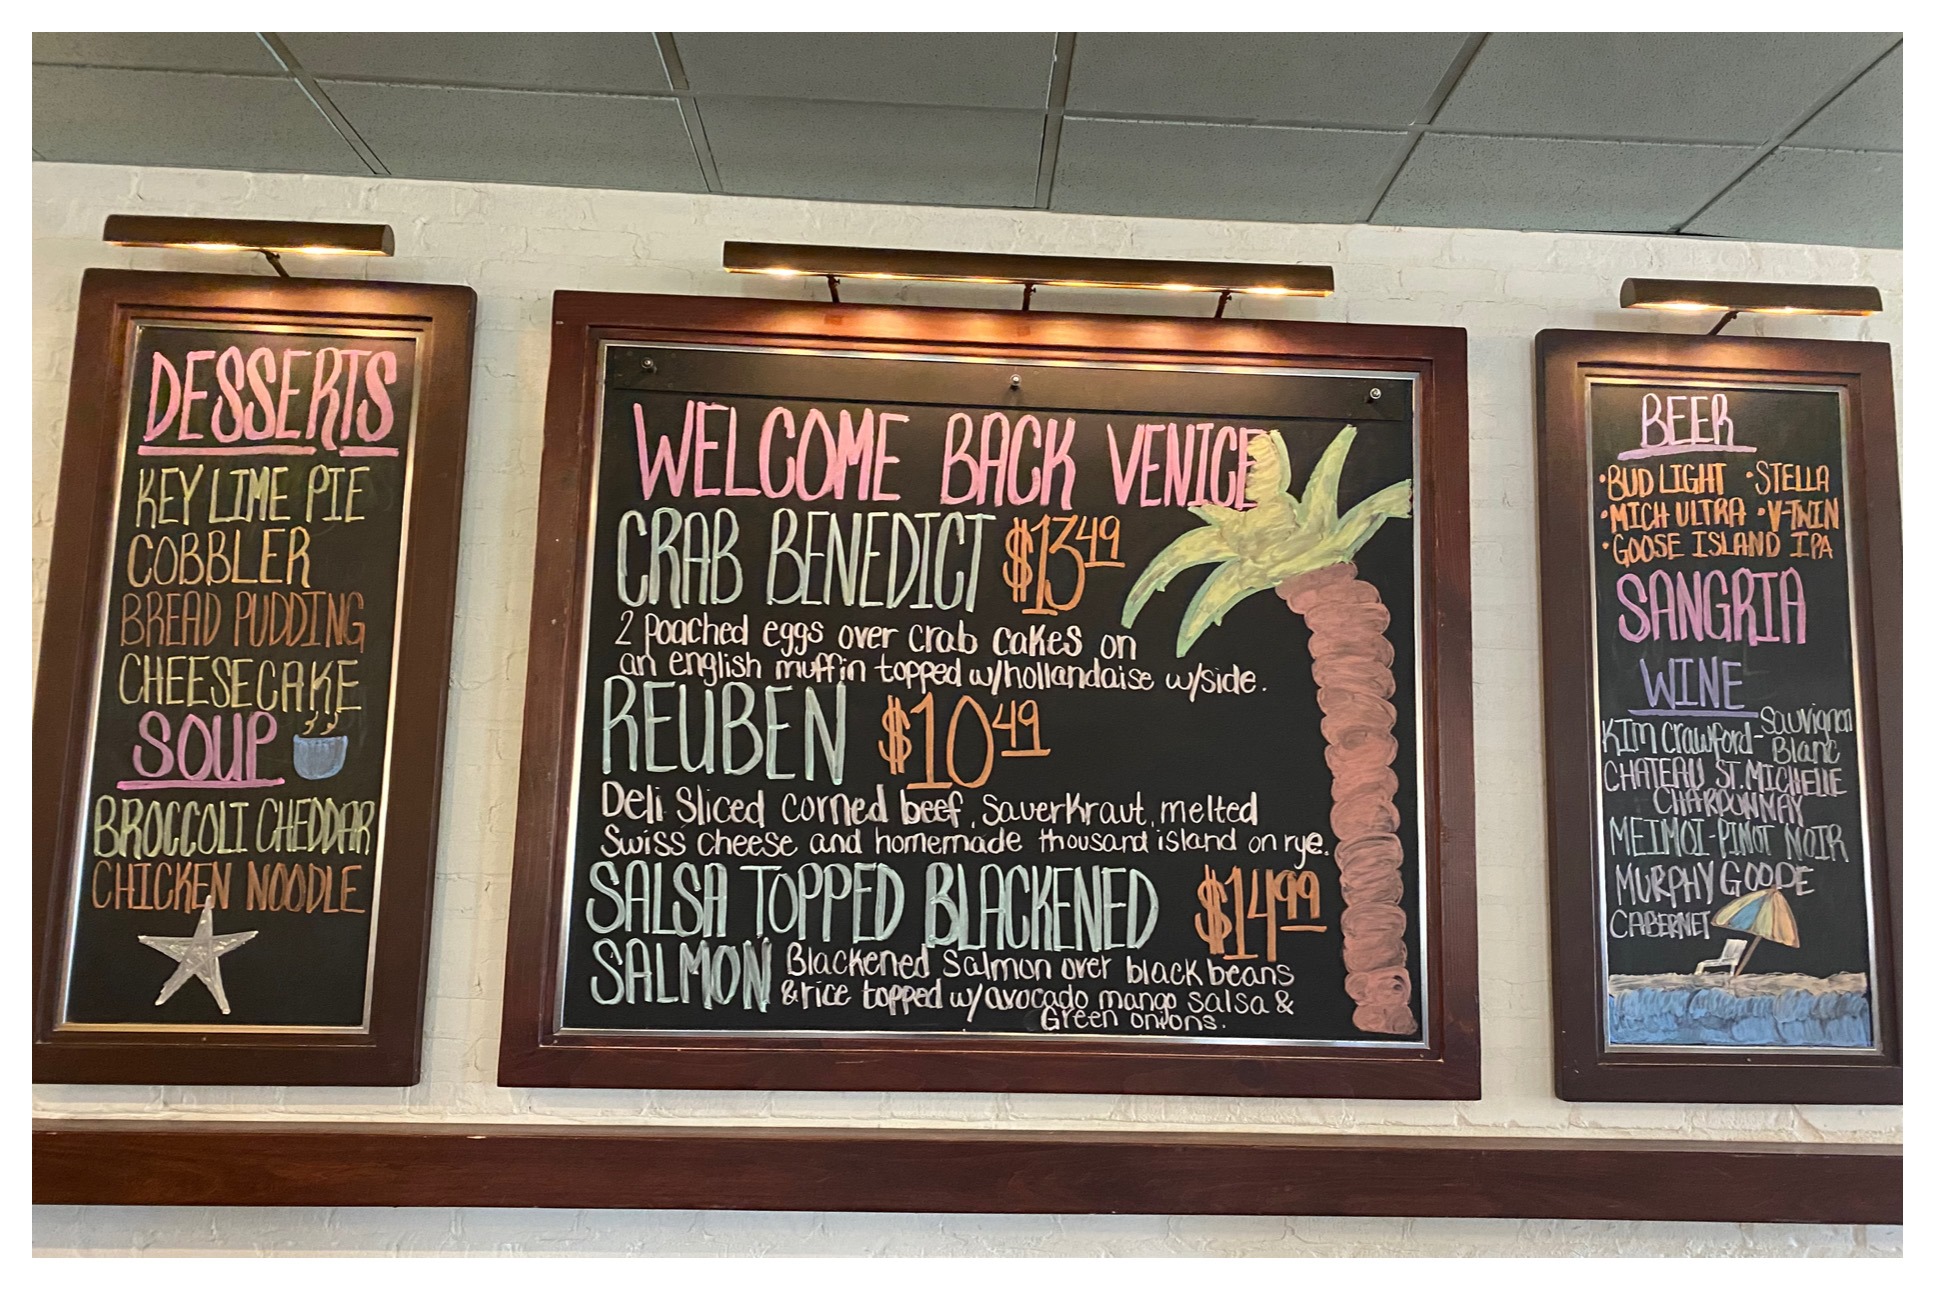 DESSERTS
KEY LIME PIE
COBBLER
BREAD PUDDING
CHEESECAKE
SOUP
BROCCOLI CHEDDAR
CHICKEN NOODLE
WELCOME BACK VENICE
CRAB BENEDICT $13.49
2 poached eggs over crab cakes on
an english muffin topped w/hollandaise w/side.
REUBEN $10.49
Deli Sliced corned beef, Sauerkraut, melted
Swiss cheese and homemade thousand island on rye.
SALSA TOPPED BLACKENED $14.99
SALMON Blackened Salmon over black beans
& rice topped w/avocado mango salsa &
Green onions.
BEER
•BUD LIGHT •STELLA
•MICH ULTRA •V-TWIN
•GOOSE ISLAND IPA
SANGRIA
WINE
KIM Crawford-Sauvignon
Blanc
CHATEAU ST. MICHELLE
CHARDONNAY
MEIMOI-PINOT NOIR
MURPHY GOODE
CABERNET